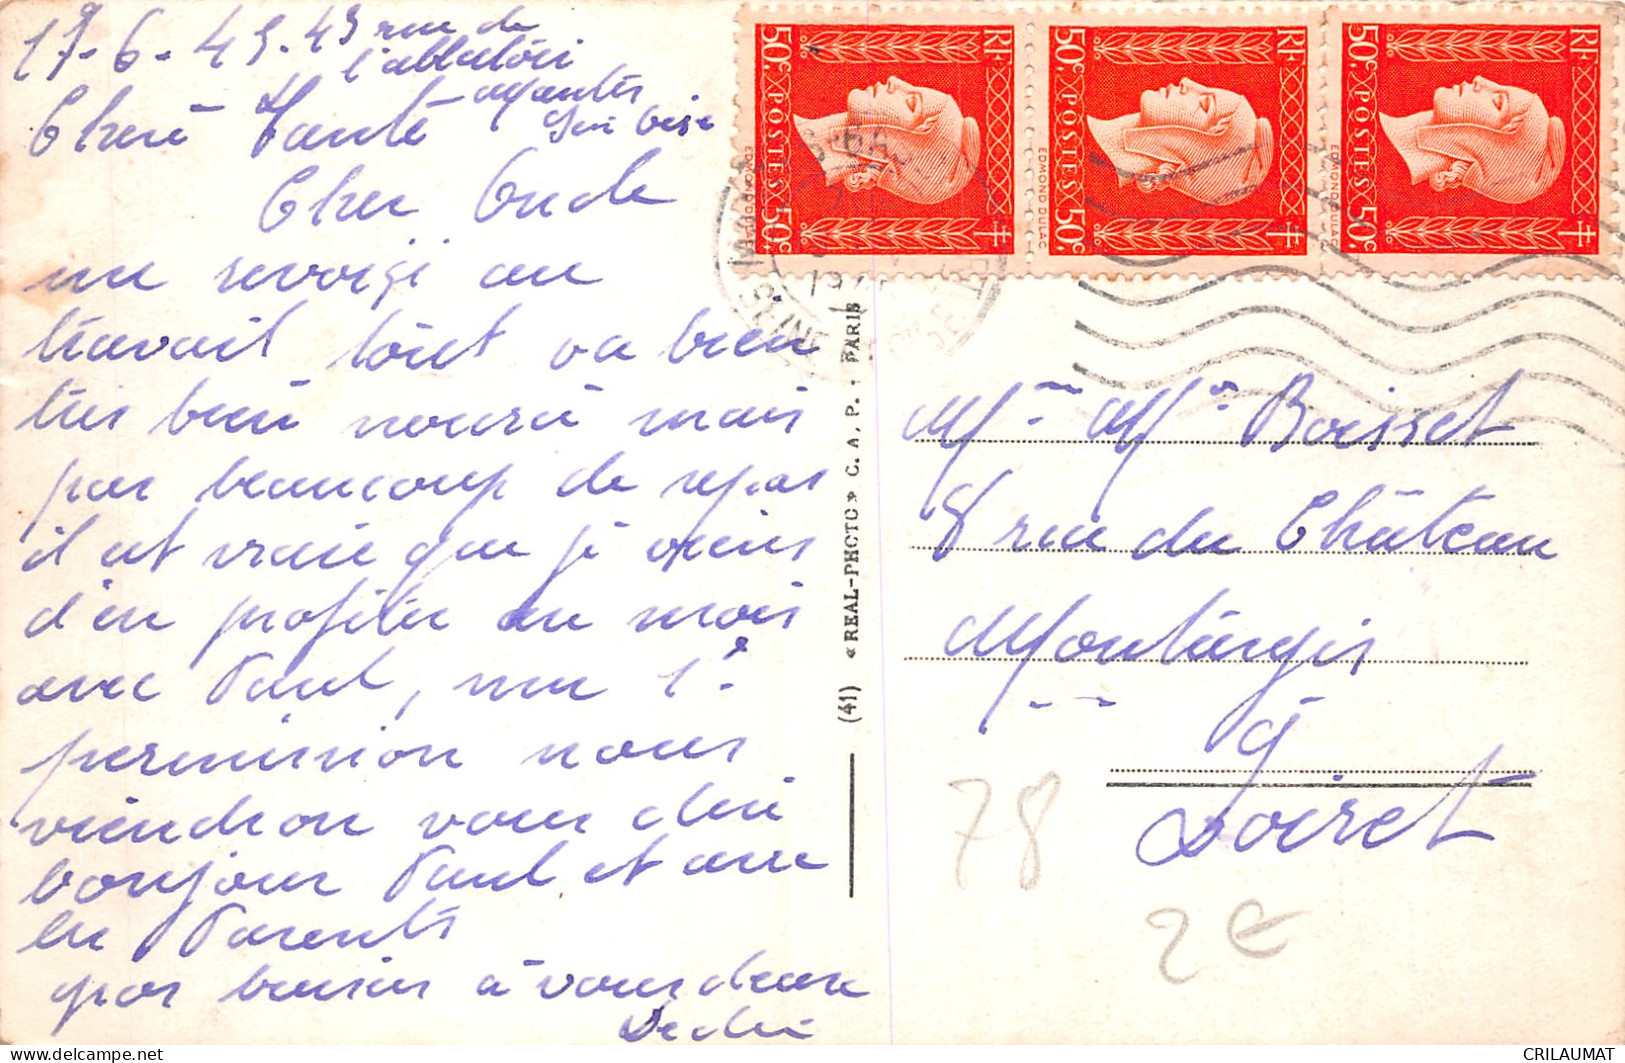 17-6-45. 45 rue de
l'abbatoir
Mantes
Chere Tante
Cher Oncle
me revoici au
travail tout va bien
tres bien nourri mais
pas beaucoup de repas
il est vrai que je viens
d'en profiter un mois
avec Paul, ma 1e
permission nous
viendron vous dire
bonjour Paul et avec
les Parents
gros baisers à vous deux
Dédée
(41) «REAL-PHOTO» C. A. P. - PARIS
RF
50c POSTES 50c
EDMOND DULAC
RF
50c POSTES 50c
EDMOND DULAC
RF
50c POSTES 50c
EDMOND DULAC
Mr Me Boisset
8 rue du Château
Montargis
Loiret
78
2€
CRILAUMAT